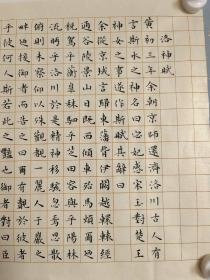 洛神賦
黃初三年余朝京師還濟洛川古人有
言斯水之神名曰宓妃感宋玉對楚王
神女之事遂作斯賦其辭曰
余從京域言歸東藩背伊闕越轘轅經
通谷陵景山日既西傾車殆馬煩爾迺
稅駕乎蘅皋秣駟乎芝田容與乎陽林
流眄乎洛川於是精移神駭忽焉思散
俯則未察仰以殊觀睹一麗人于巖之
畔迺援御者而告之曰爾有覿於彼者
乎彼何人斯若此之豔也御者對曰臣